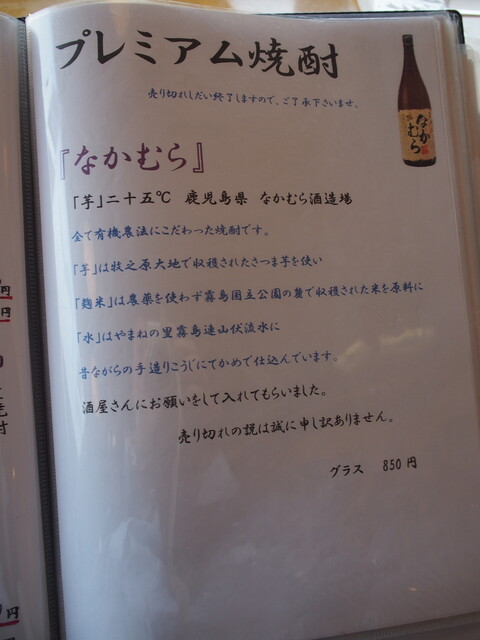 プレミアム焼酎
売り切れしだい終了しますので、ご了承下さいませ。
なかむら
『なかむら』
「芋」二十五℃ 鹿児島県 なかむら酒造場
全て有機農法にこだわった焼酎です。
「芋」は牧之原大地で収穫されたさつま芋を使い
「麹米」は農薬を使わず霧島国立公園の麓で収穫された米を原料に
「水」はやまねの里霧島連山伏流水に
昔ながらの手造りこうじにてかめで仕込んでいます。
酒屋さんにお願いをして入れてもらいました。
売り切れの説は誠に申し訳ありません。
グラス 850円
円
円
円